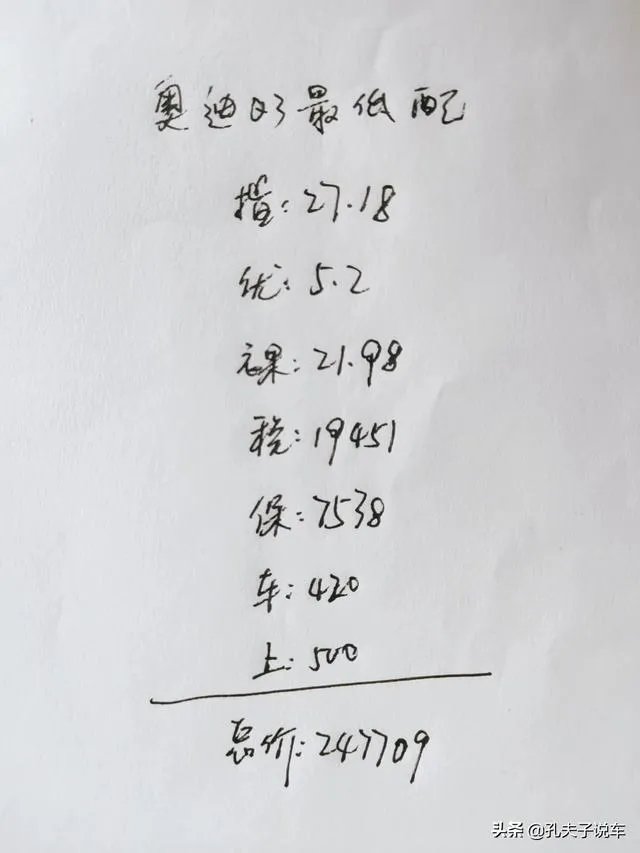 奥迪Q3最低配
指:27.18
优:5.2
裸:21.98
税:19451
保:7538
车:420
上:500
总价:247709
头条 @孔夫子说车